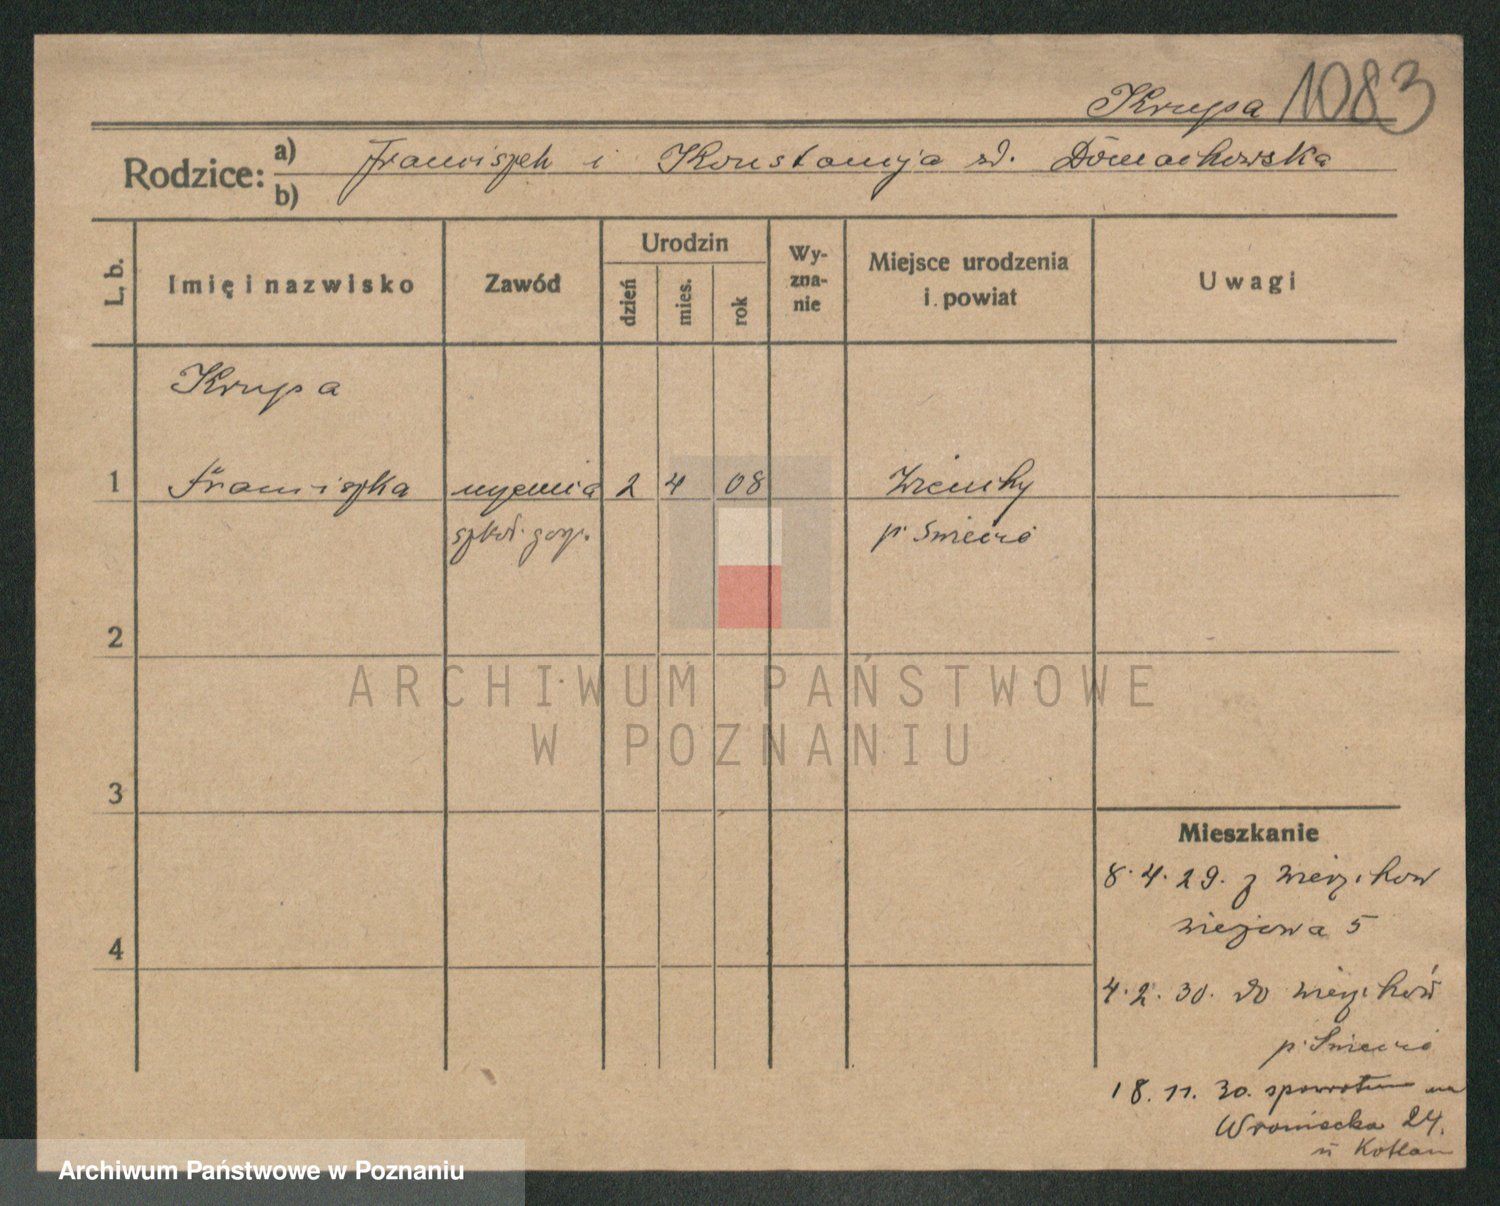 Krupa 1083
Rodzice: a) Franciszek i Konstancja zd. Domachowska
b)
L. b.
Imię i nazwisko
Zawód
Urodzin
dzień
mies.
rok
Wy-
zna-
nie
Miejsce urodzenia
i powiat
Uwagi
Krupa
1 Franciszka uczenia 2 4 08
szkoł. gosp. p. Swiecie
2
ARCHIWUM PAŃSTWOWE
W POZNANIU
3
Mieszkanie
8.4.29. z
5
4
4.2.30. do
p. Swiecie
18.11.30. spowrotem na
Wroniecka 24.
u Kotlan
Archiwum Państwowe w Poznaniu